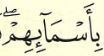 بِأَسۡمَآئِهِمۡۖ